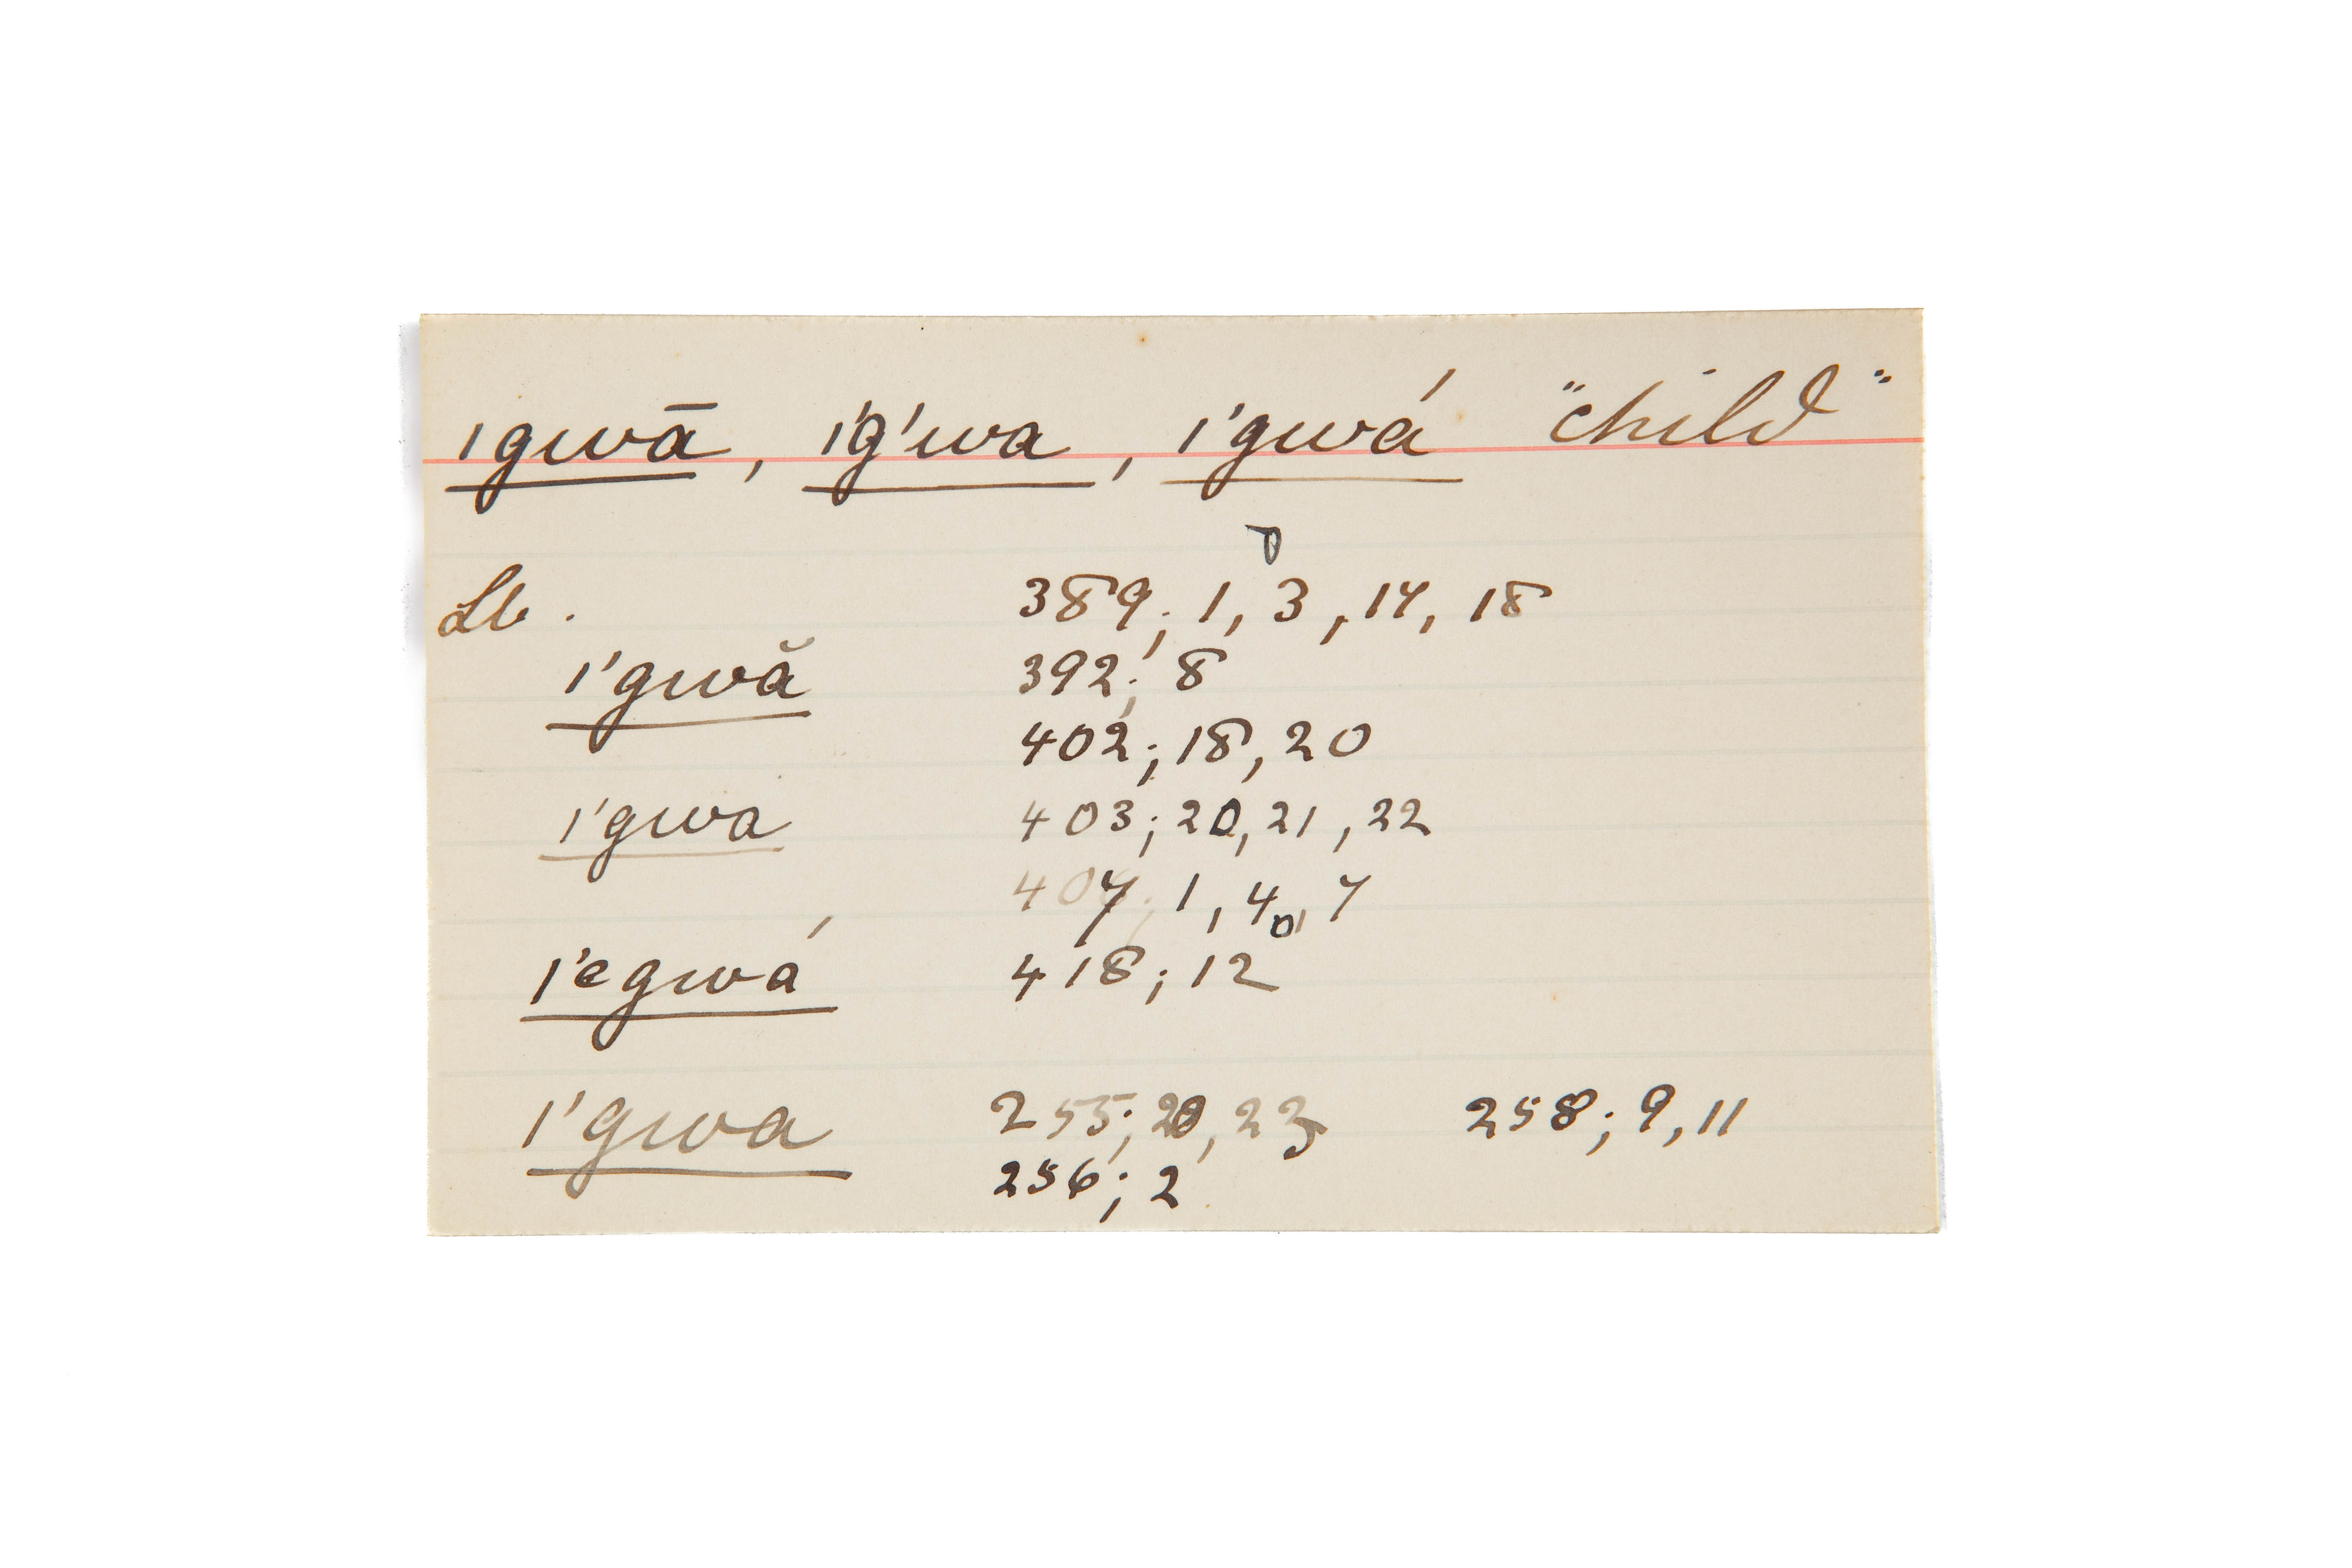 ıgwā, ı'g'wa, ı'gwá "child"
Lb. 389; 1, 3, 14, 18
ı'gwă 392; 8
402; 18, 20
ı'gwa 403; 20, 21, 22
407; 1, 4, 7
ı'egwá 418; 12
ı'gwa 255; 20, 23 258; 9, 11
256; 2